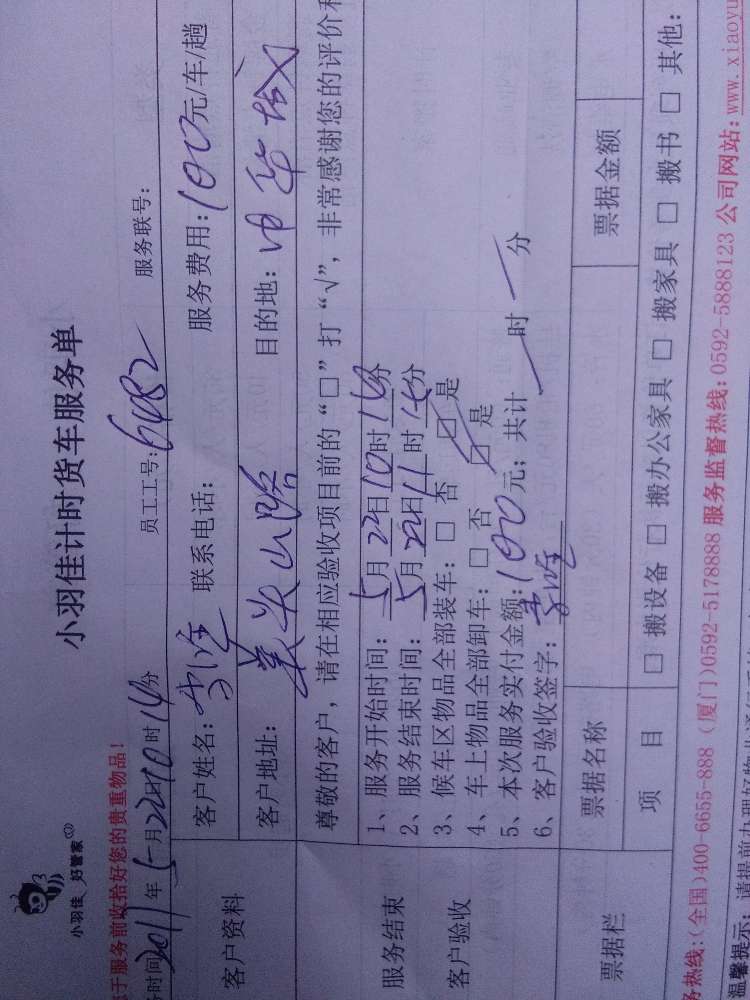 小羽佳 好管家
小羽佳计时货车服务单
于服务前收拾好您的贵重物品！
务时间 2011年5月22日10时14分 员工工号：6482 服务联号：
客户资料
客户姓名： 联系电话： 服务费用：100元/车/趟
客户地址：美头山路 目的地：中华城
尊敬的客户，请在相应验收项目前的“□”打“√”，非常感谢您的评价和
服务结束
客户验收
1、服务开始时间：5月22日10时14分
2、服务结束时间：5月22日11时14分
3、候车区物品全部装车：□ 否 □ 是
4、车上物品全部卸车：□ 否 □ 是
5、本次服务实付金额：100元；共计 时 分
6、客户验收签字：
票据栏
票据名称 票据金额
项 目 □ 搬设备 □ 搬办公家具 □ 搬家具 □ 搬书 □ 其他：
务热线：(全国)400-6655-888 (厦门)0592-5178888 服务监督热线：0592-5888123 公司网站：www.xiaoyu
温馨提示：请提前办理好物